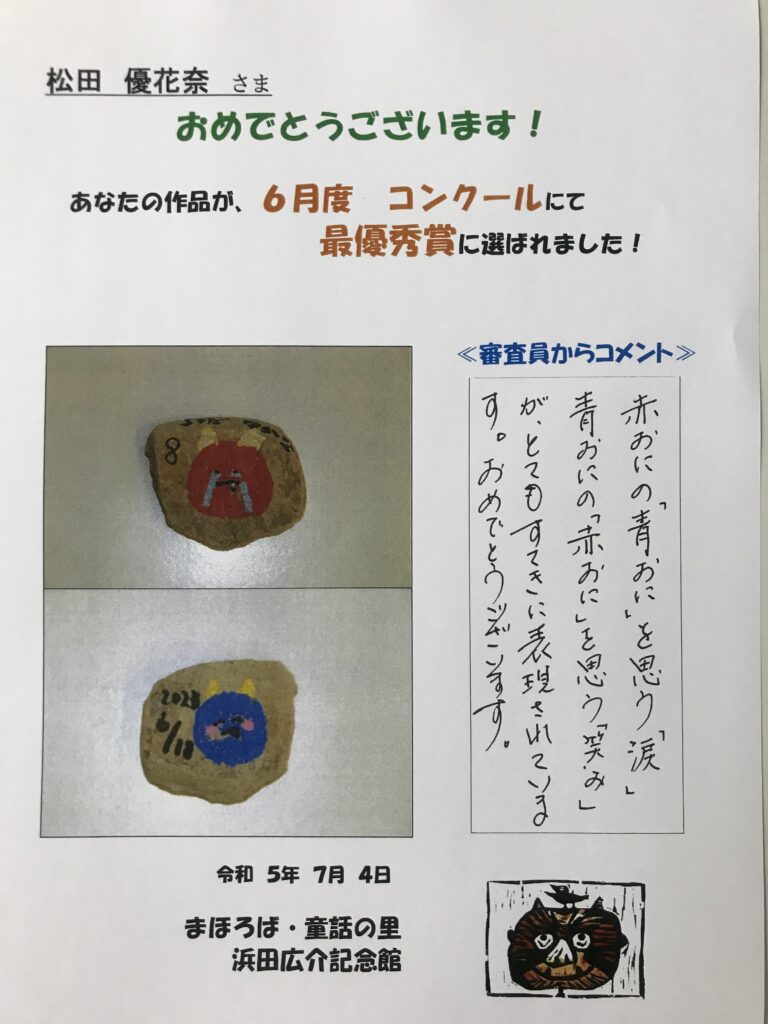 松田　優花奈　さま
おめでとうございます！
あなたの作品が、６月度　コンクールにて
最優秀賞に選ばれました！
≪審査員からコメント≫
赤おにの「青おに」を思う「涙」
青おにの「赤おに」を思う「笑み」
が、とてもすてきに表現されていま
す。おめでとうございます。
8
2023
6/18
令和 5年 7月 4日
まほろば・童話の里
浜田広介記念館